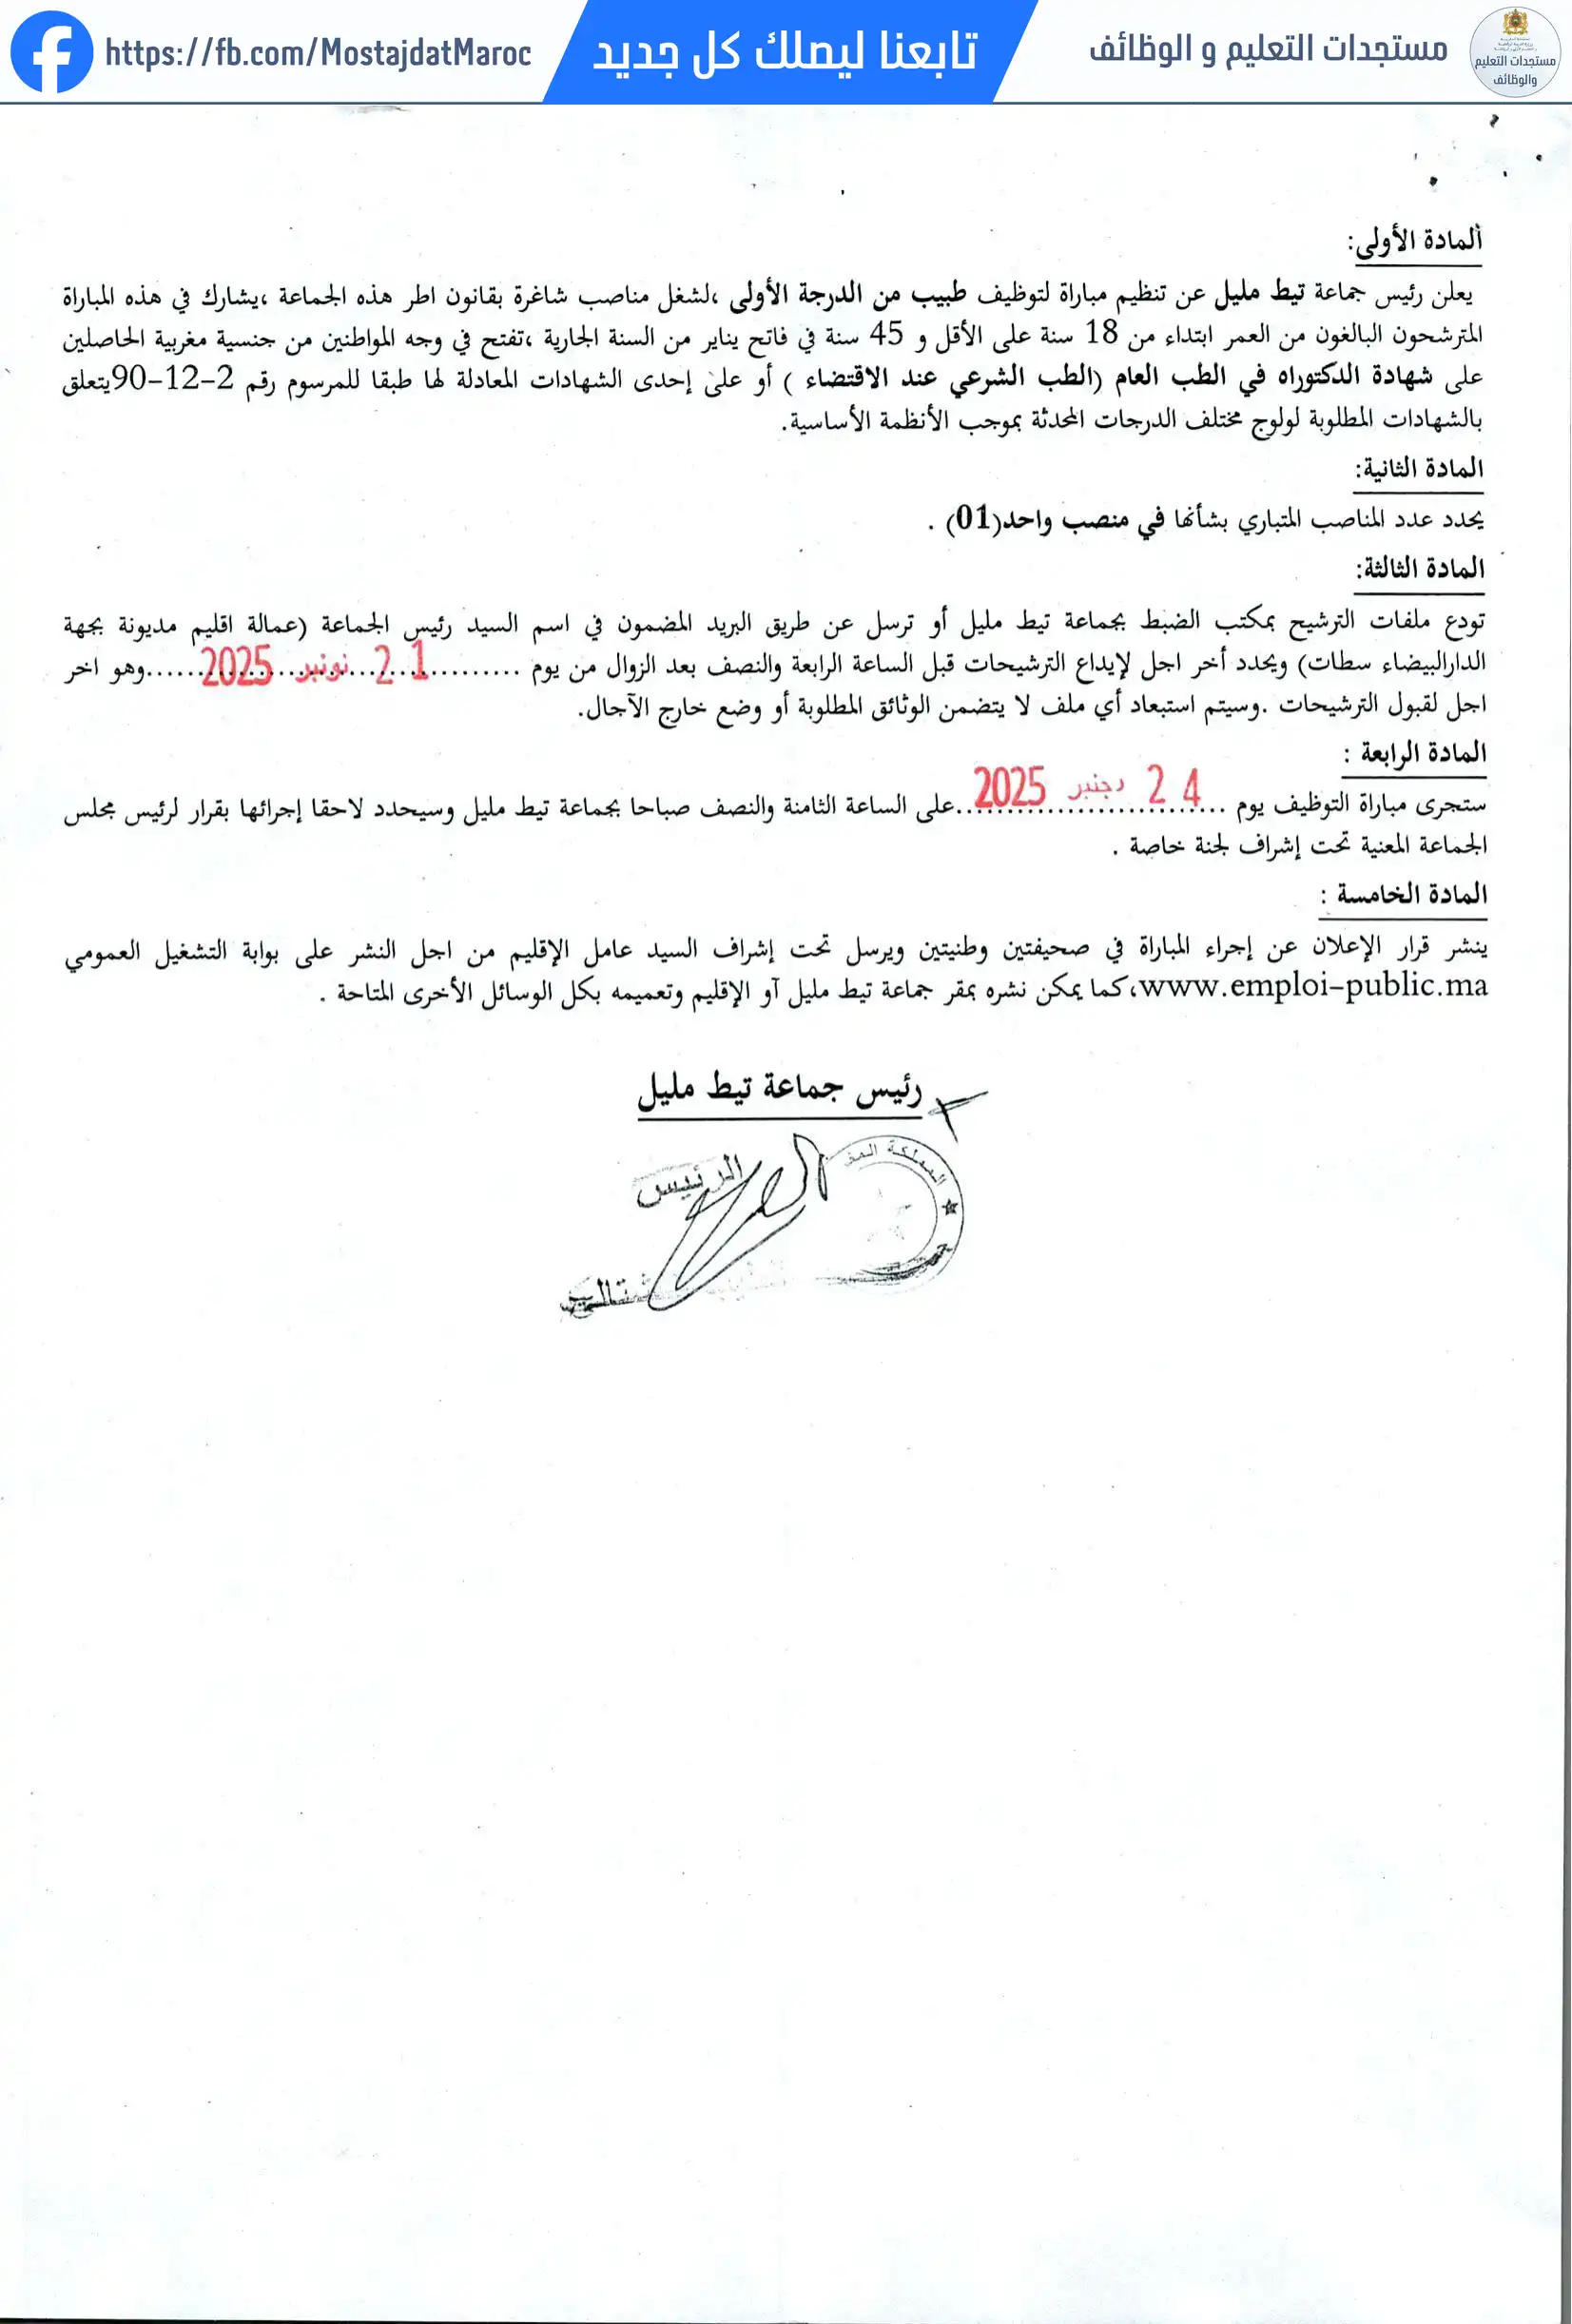 مستجدات التعليم و الوظائف
تابعنا ليصلك كل جديد
https://fb.com/MostajdatMaroc
مستجدات التعليم
والوظائف
المادة الأولى:
يعلن رئيس جماعة تيط مليل عن تنظيم مباراة لتوظيف طبيب من الدرجة الأولى ،لشغل مناصب شاغرة بقانون اطر هذه الجماعة ،يشارك في هذه المباراة
المترشحون البالغون من العمر ابتداء من 18 سنة على الأقل و 45 سنة في فاتح يناير من السنة الجارية ،تفتح في وجه المواطنين من جنسية مغربية الحاصلين
على شهادة الدكتوراه في الطب العام (الطب الشرعي عند الاقتضاء ) أو على إحدى الشهادات المعادلة لها طبقا للمرسوم رقم 2-12-90يتعلق
بالشهادات المطلوبة لولوج مختلف الدرجات المحدثة بموجب الأنظمة الأساسية.
المادة الثانية:
يحدد عدد المناصب المتباري بشأنها في منصب واحد(01) .
المادة الثالثة:
تودع ملفات الترشيح بمكتب الضبط بجماعة تيط مليل أو ترسل عن طريق البريد المضمون في اسم السيد رئيس الجماعة (عمالة اقليم مديونة بجهة
الدارالبيضاء سطات) ويحدد أخر اجل لإيداع الترشيحات قبل الساعة الرابعة والنصف بعد الزوال من يوم ......21 نونبر 2025......وهو اخر
اجل لقبول الترشيحات .وسيتم استبعاد أي ملف لا يتضمن الوثائق المطلوبة أو وضع خارج الآجال.
المادة الرابعة :
ستجرى مباراة التوظيف يوم ......24 دجنبر 2025......على الساعة الثامنة والنصف صباحا بجماعة تيط مليل وسيحدد لاحقا إجرائها بقرار لرئيس مجلس
الجماعة المعنية تحت إشراف لجنة خاصة .
المادة الخامسة :
ينشر قرار الإعلان عن إجراء المباراة في صحيفتين وطنيتين ويرسل تحت إشراف السيد عامل الإقليم من اجل النشر على بوابة التشغيل العمومي
www.emploi-public.ma،كما يمكن نشره بمقر جماعة تيط مليل آو الإقليم وتعميمه بكل الوسائل الأخرى المتاحة .
رئيس جماعة تيط مليل
الرئيس
المملكة